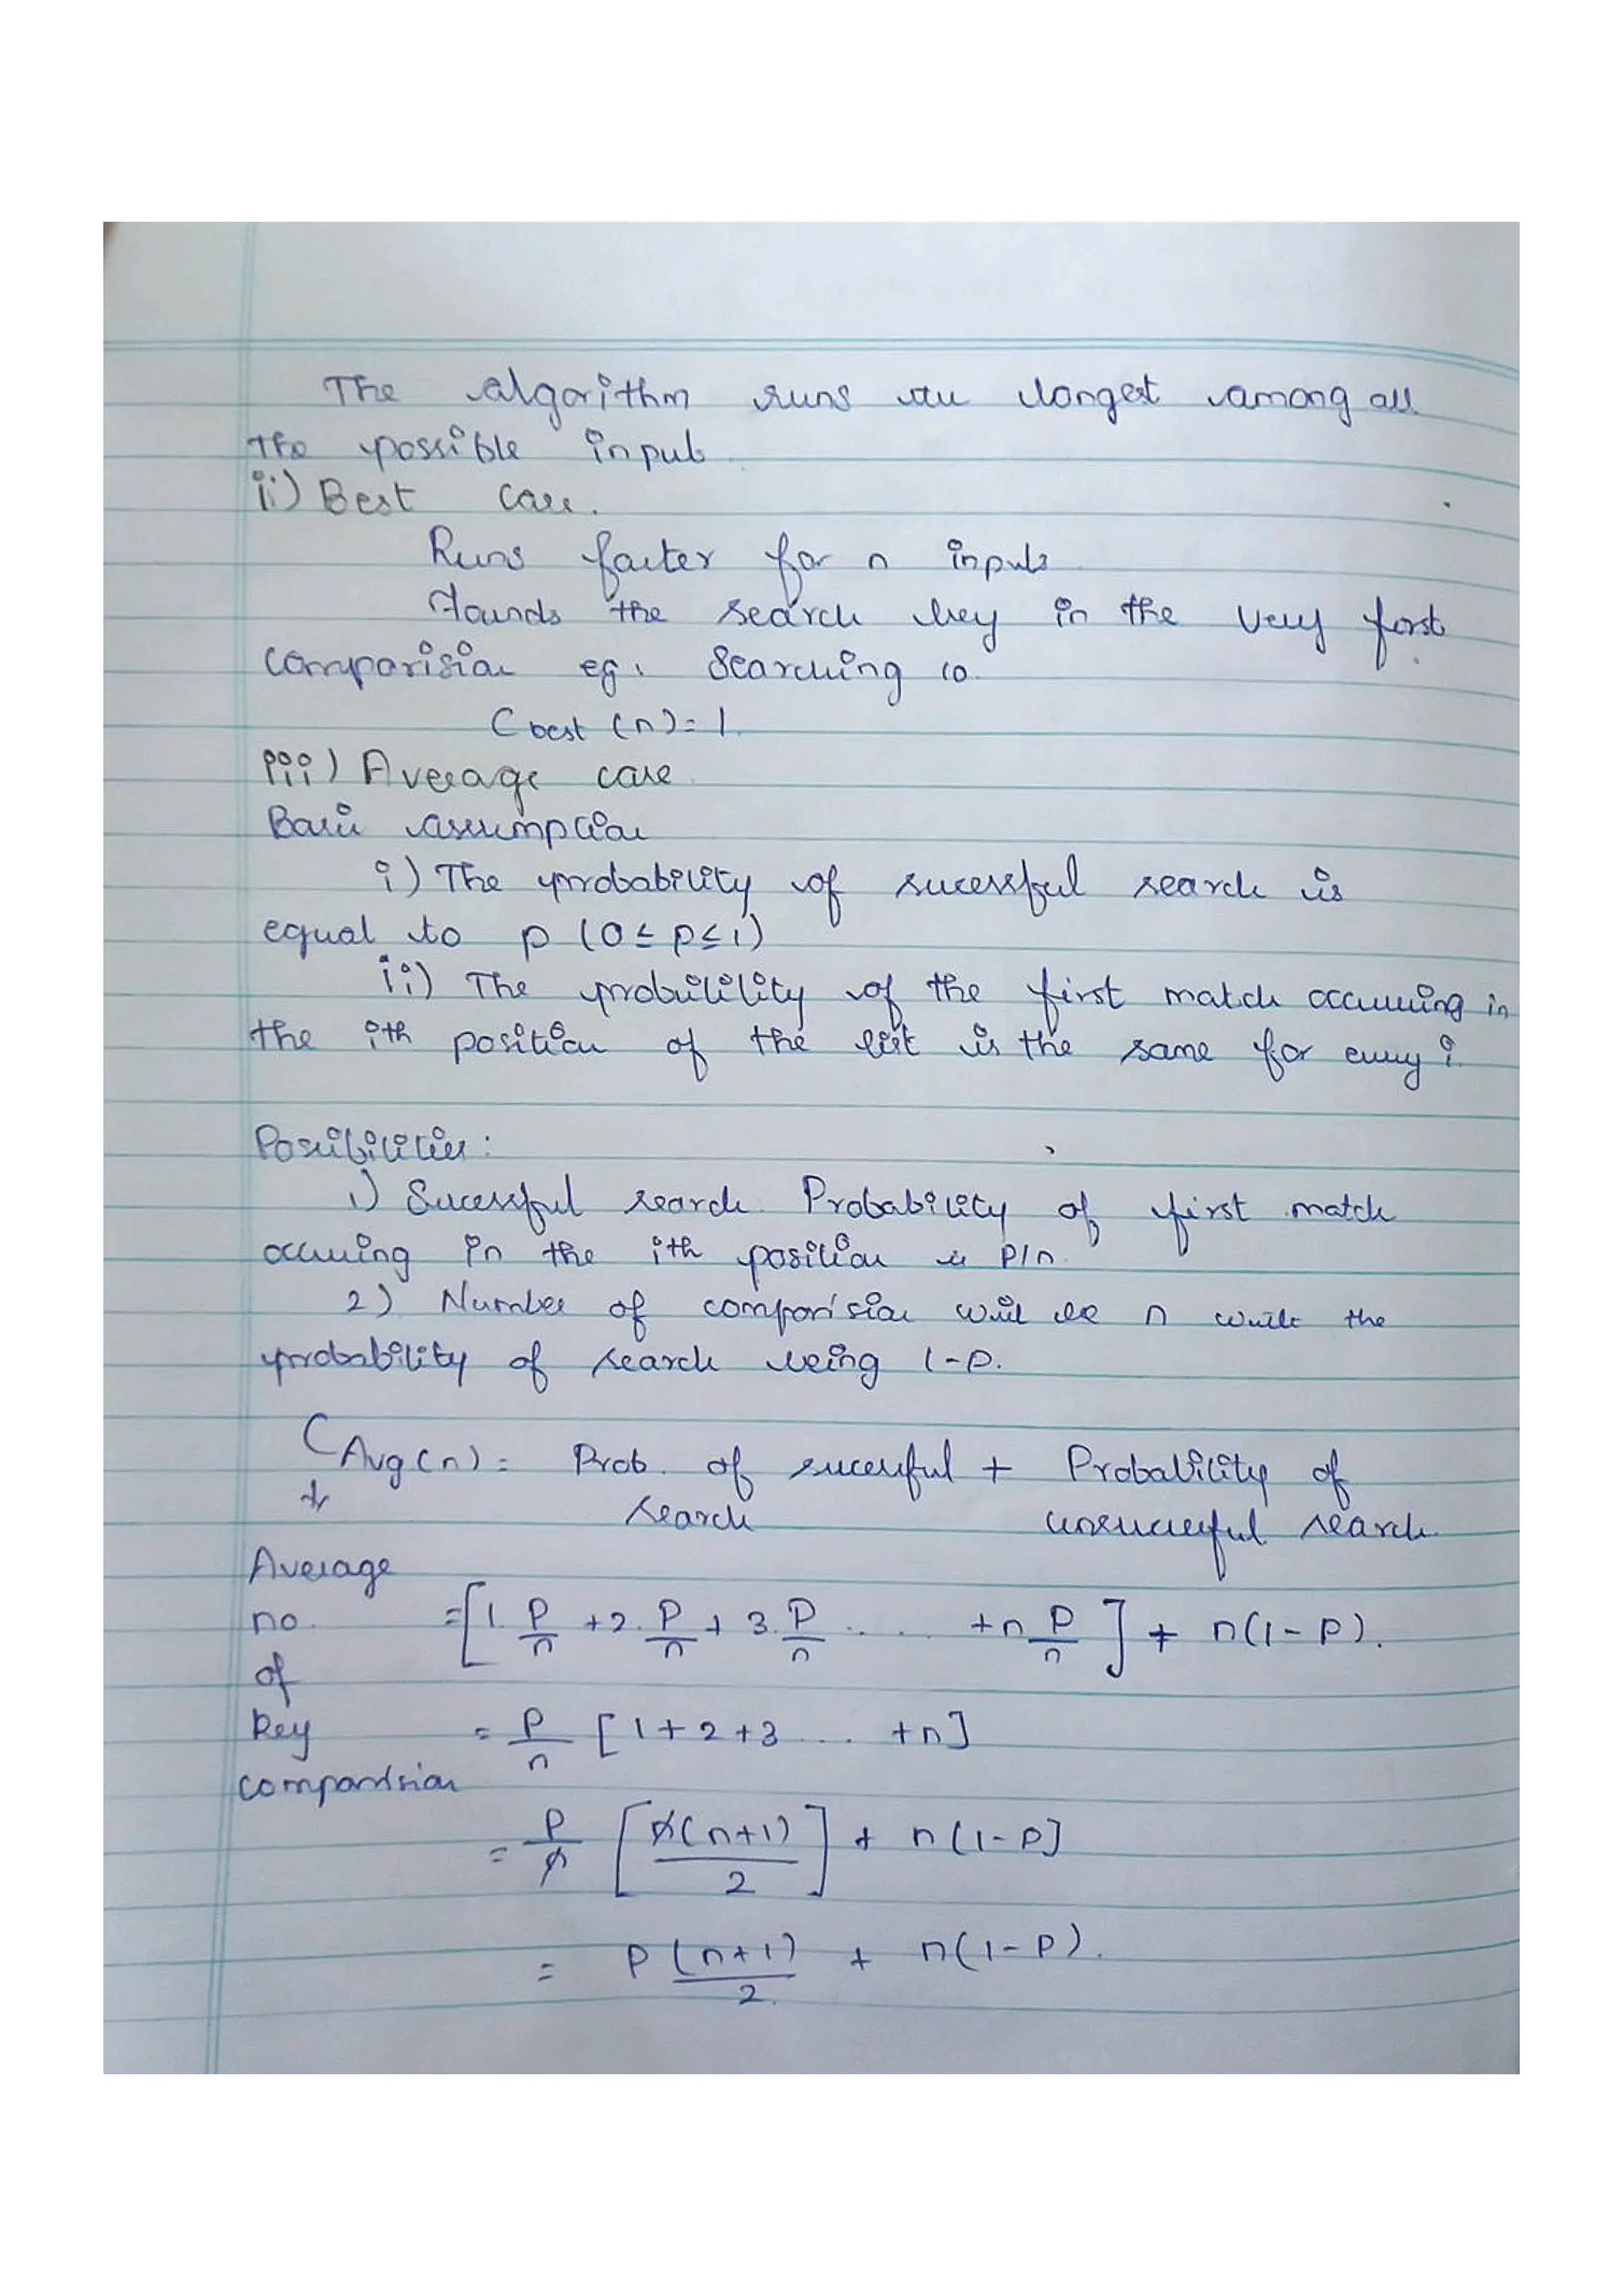 The algorithm runs the longest among all
the possible input
ii) Best case.
Runs faster for n inputs
Founds the search key in the very first
comparision eg: Searching 10.
C best (n) = 1.
iii) Average case
Basic assumption
i) The probability of sucessful search is
equal to p (0 ≤ p ≤ 1)
ii) The probability of the first match occuring in
the ith position of the list is the same for every i.
Possibilities:
1) Sucessful search. Probability of first match
occuring in the ith position is P/n.
2) Number of comparision will be n while the
probability of search being 1-p.
C Avg(n) = Prob. of sucessful + Probability of
↓ search unsuccessful search.
Average
no. = [1. P/n + 2. P/n + 3. P/n ..... + n P/n ] + n(1-P).
of
key = P/n [1+2+3 ... +n]
comparision
= P/n [n(n+1)/2] + n(1-P]
= P (n+1)/2. + n(1-P).